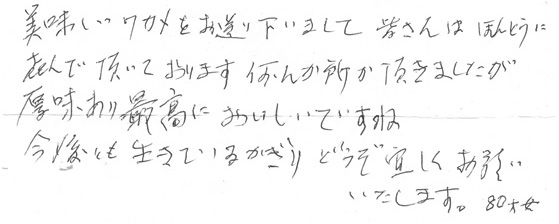 美味しいワカメをお送り下いまして 皆さんは ほんとうに
喜んで 頂いて おります 何んか所か頂きましたが
厚味あり 最高に おいしいですね
今後とも 生きているかぎり どうぞ宜しくお願い
いたします。 80才女